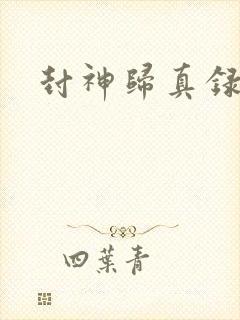 封神歸真錄
四葉青